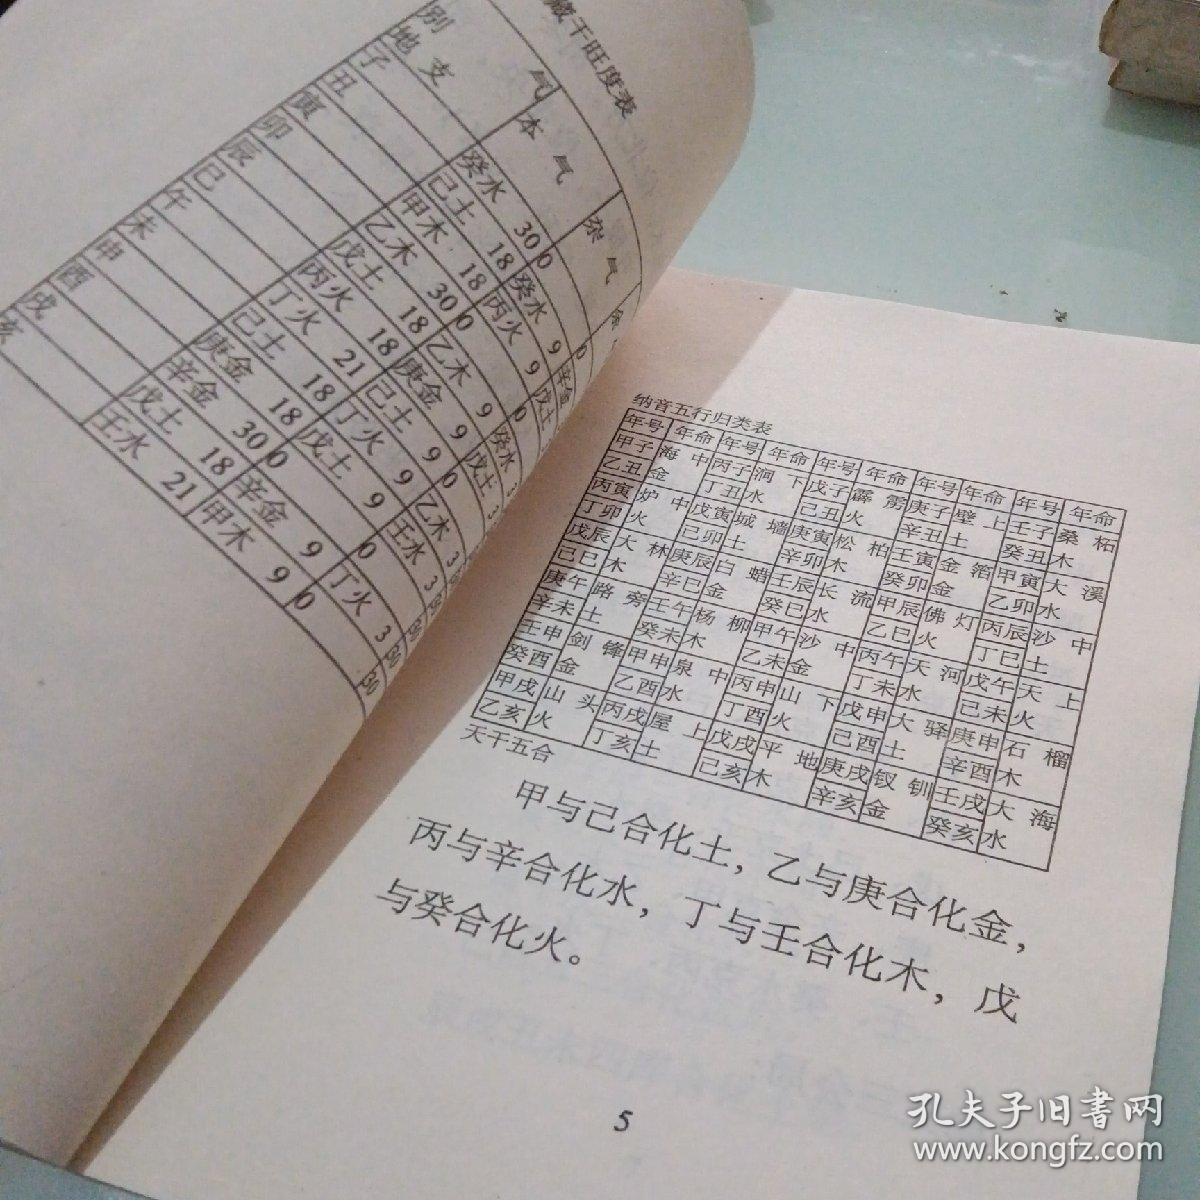 藏干旺度表
别 气
地支 本气 杂气
子 癸水 30 0 0
丑 己土 18 癸水 9
寅 甲木 18 丙火 9 戊土
卯 乙木 30 0 0
辰 戊土 18 乙木 9 癸水 3
巳 丙火 18 庚金 9 戊土 3
午 丁火 21 己土 9 0
未 己土 18 丁火 9 乙木 3 30
申 庚金 18 戊土 9 壬水 3 30
酉 辛金 30 0 0 30
戌 戊土 18 辛金 9 丁火 3 30
亥 壬水 21 甲木 9 0 30
纳音五行归类表
年号 年命 年号 年命 年号 年命 年号 年命 年号 年命
甲子 海中 丙子 涧下 戊子 霹雳 庚子 壁上 壬子 桑柘
乙丑 金 丁丑 水 己丑 火 辛丑 土 癸丑 木
丙寅 炉中 戊寅 城墙 庚寅 松柏 壬寅 金箔 甲寅 大溪
丁卯 火 己卯 土 辛卯 木 癸卯 金 乙卯 水
戊辰 大林 庚辰 白蜡 壬辰 长流 甲辰 佛灯 丙辰 沙中
己巳 木 辛巳 金 癸巳 水 乙巳 火 丁巳 土
庚午 路旁 壬午 杨柳 甲午 沙中 丙午 天河 戊午 天上
辛未 土 癸未 木 乙未 金 丁未 水 己未 火
壬申 剑锋 甲申 泉中 丙申 山下 戊申 大驿 庚申 石榴
癸酉 金 乙酉 水 丁酉 火 己酉 土 辛酉 木
甲戌 山头 丙戌 屋上 戊戌 平地 庚戌 钗钏 壬戌 大海
乙亥 火 丁亥 土 己亥 木 辛亥 金 癸亥 水
天干五合
甲与己合化土，乙与庚合化金，
丙与辛合化水，丁与壬合化木，戊
与癸合化火。
5
孔夫子旧书网
www.kongfz.com